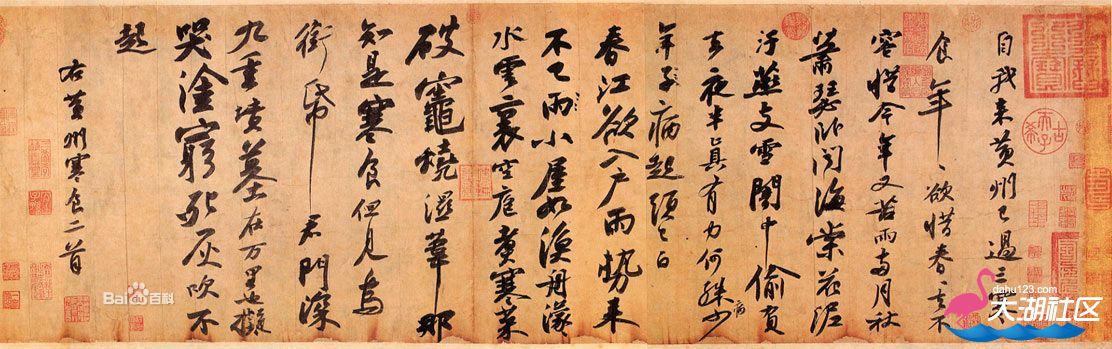 自我来黄州已過三寒
食年〻欲惜春〻去不
容惜今年又苦雨兩月秋
蕭瑟卧聞海棠花泥
汙燕支雪闇中偷負
去夜半真有力何殊少
病
年子病起頭已白
春江欲入户雨勢来
不已雨小屋如漁舟濛〻
水雲裏空庖煮寒菜
破竈燒濕葦那
知是寒食但見烏
銜帋君門深
九重墳墓在万里也擬
哭塗窮死灰吹不
起
右黄州寒食二首
古希天子
Bai度百科
dahu123.com
大湖社区